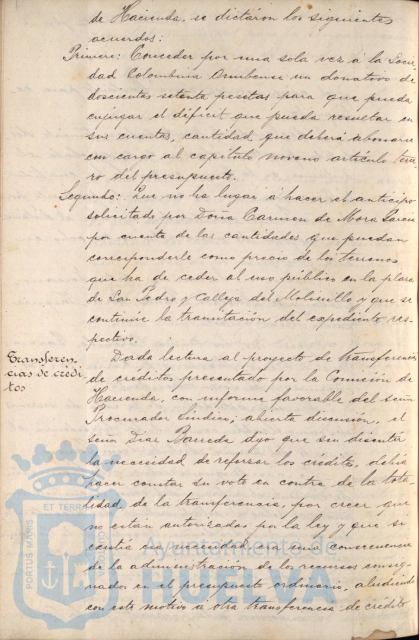 de Hacienda, se dictáron los siguientes
acuerdos:
Primero: Conceder por una sola vez á la Socie
dad Colombina Onubense un donativo de
doscientas setenta pesetas para que pueda
enjugar el déficit que pueda resultar en
sus cuentas, cantidad que deberá abonarse
con cargo al capítulo noveno artículo terce
ro del presupuesto.
Segundo: Que no ha lugar á hacer el anticipo
solicitado por Doña Carmen de Mora
por cuenta de las cantidades que puedan
corresponderle como precio de los terrenos
que ha de ceder al uso público en la plaza
de San Pedro y Calleja del Molinillo y que se
continúe la tramitación del expediente res-
pectivo.
Transferen
cias de crédi
tos
Dada lectura al proyecto de transferencias
de créditos presentado por la Comisión de
Hacienda, con informe favorable del señor
Procurador Síndico; abierta discusión, el
señor Díaz Barreda dijo que sin discutir
la necesidad de reforzar los créditos, debía
hacer constar su voto en contra de la tota-
lidad, de la transferencia, por creer que
no están autorizadas por la ley y que se
sentía un mal era una consecuencia
de la administración de los recursos consig-
nados en el presupuesto ordinario, aludiendo
con este motivo a otra transferencia de crédito
Ayuntamiento de
HUELVA
PORTUS MARIS
ET TERRAE